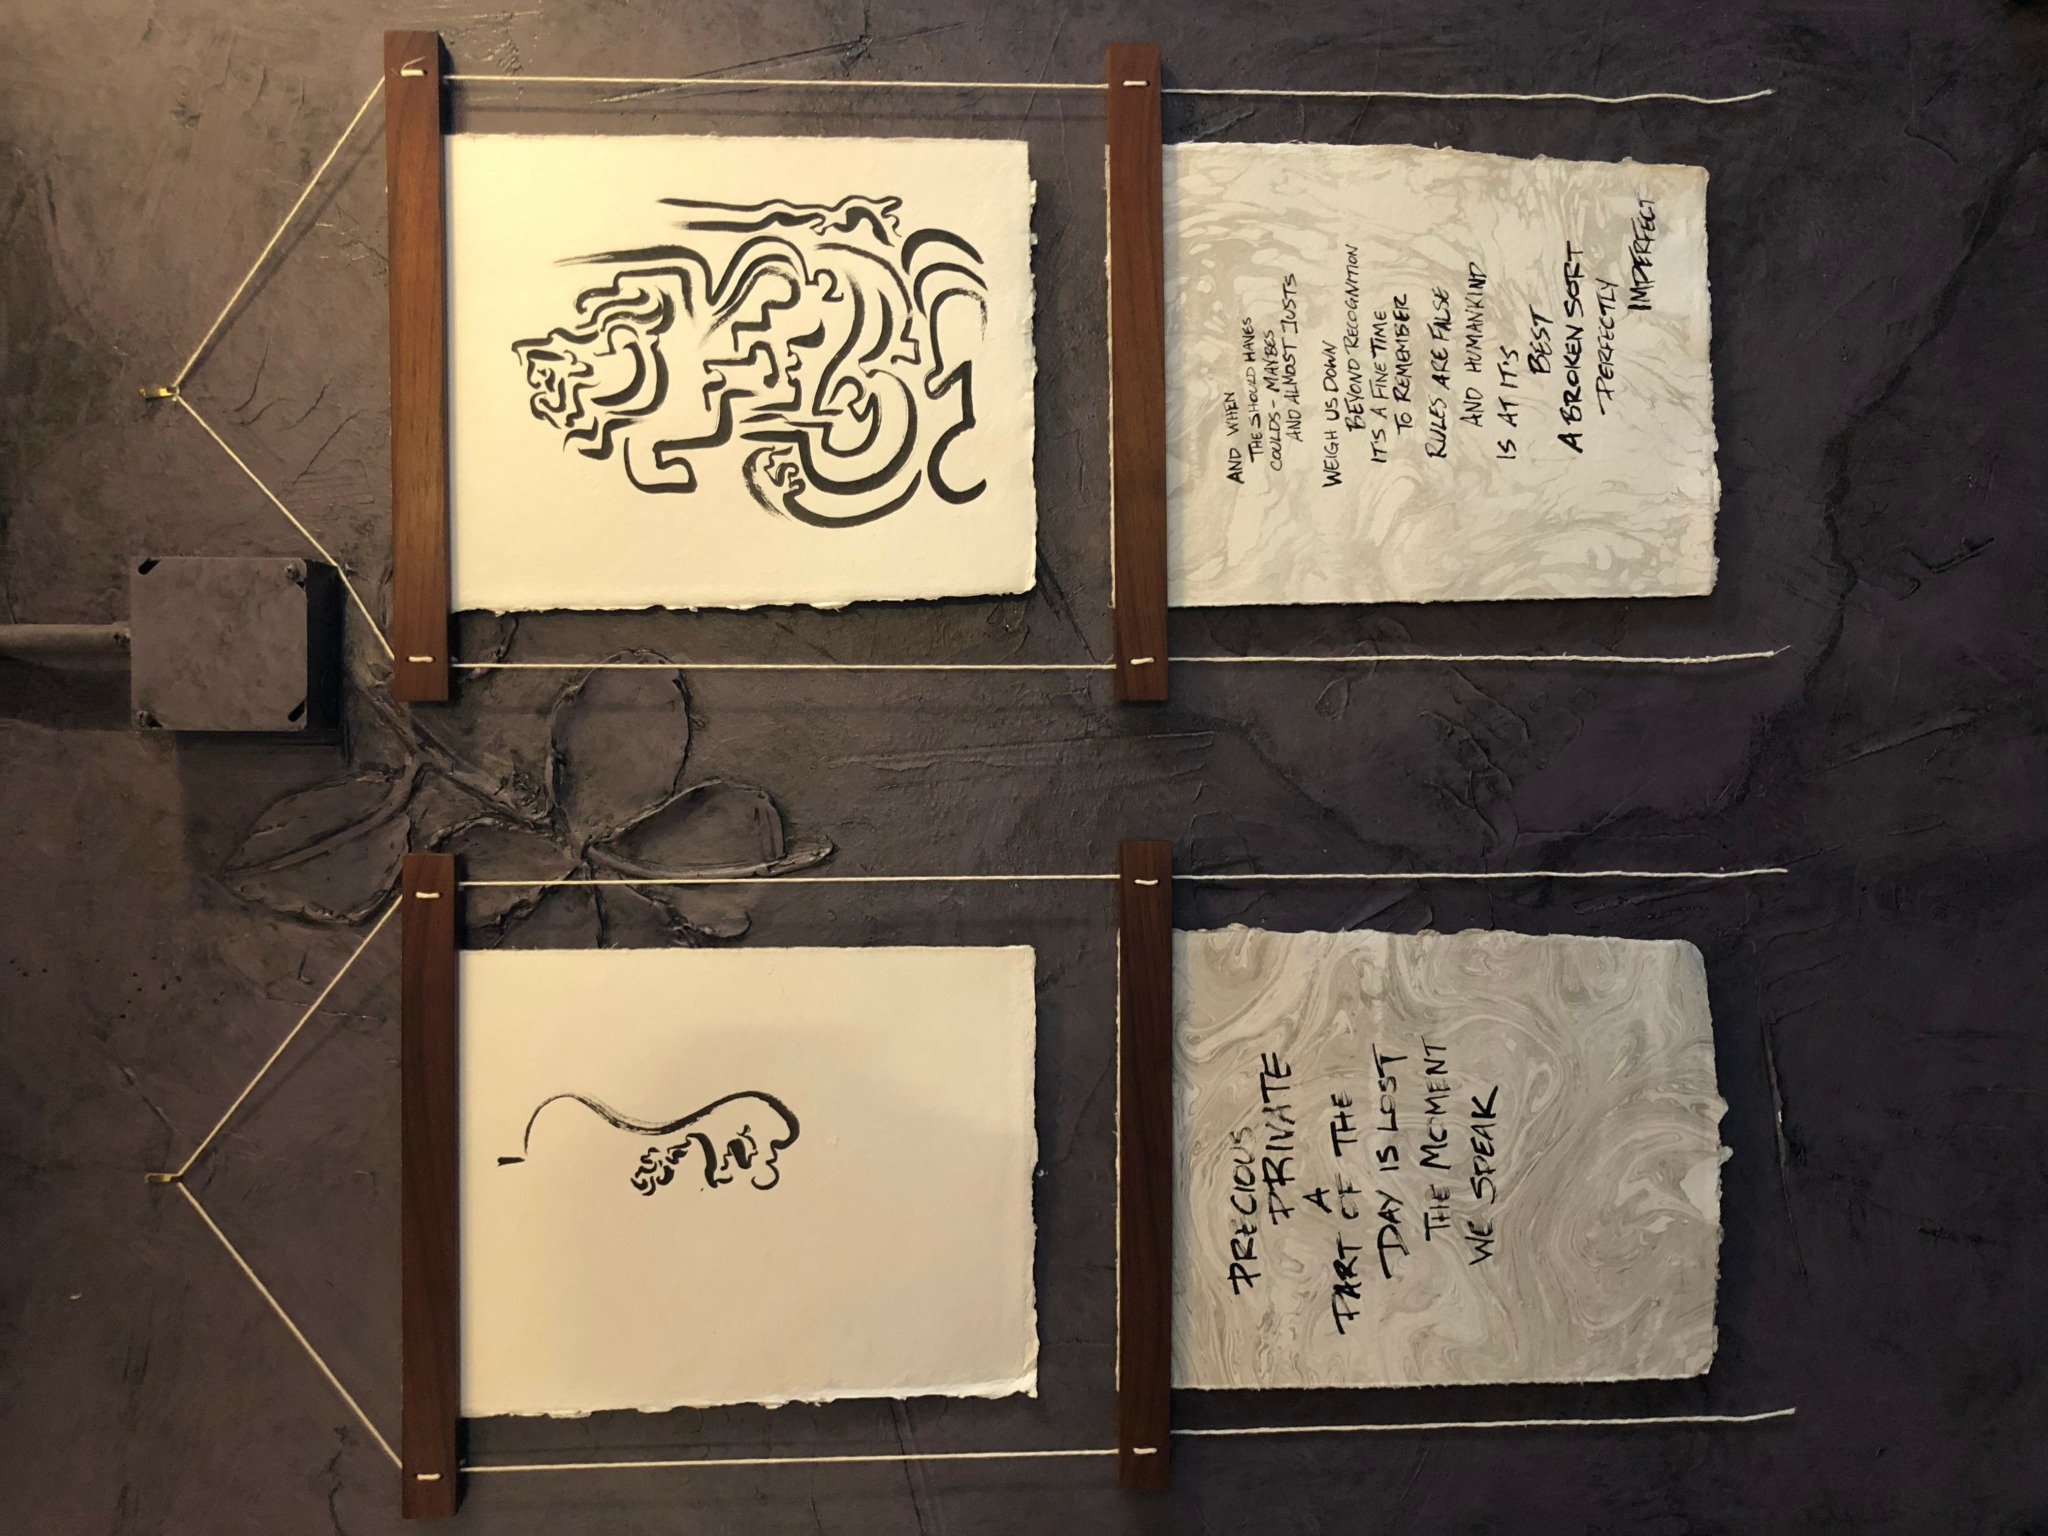 PRECIOUS
PRIVATE
A
PART OF THE
DAY IS LOST
THE MOMENT
WE SPEAK
AND WHEN
THE SHOULD HAVES
COULDS - MAYBES
AND ALMOST JUSTS
WEIGH US DOWN
BEYOND RECOGNITION
IT'S A FINE TIME
TO REMEMBER
RULES ARE FALSE
AND HUMANKIND
IS AT IT'S
BEST
A BROKEN SORT
PERFECTLY
IMPERFECT